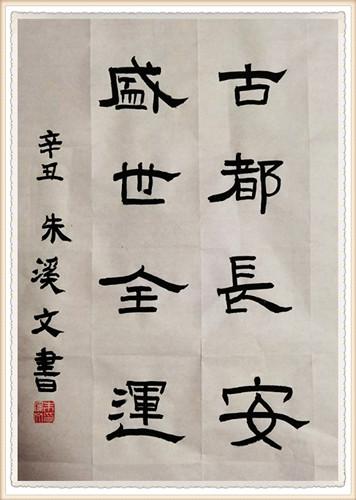 古都長安
盛世全運
辛丑 朱溪文書